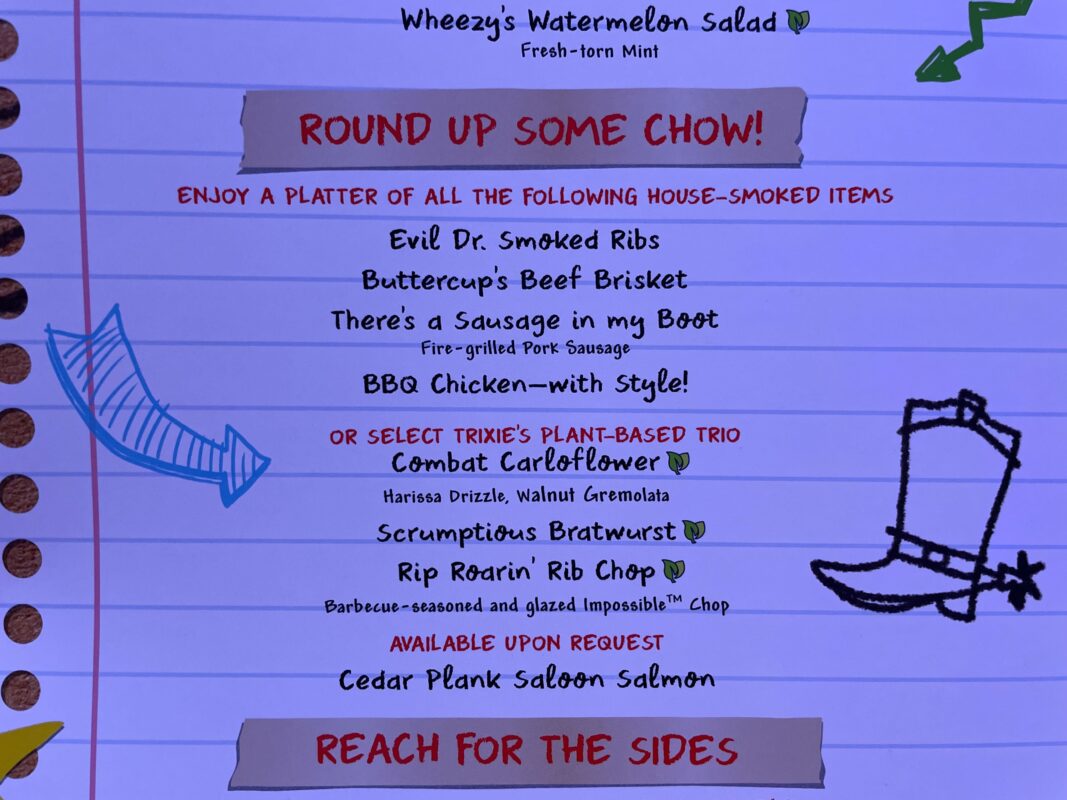 Wheezy's Watermelon Salad
Fresh-torn Mint
ROUND UP SOME CHOW!
ENJOY A PLATTER OF ALL THE FOLLOWING HOUSE-SMOKED ITEMS
Evil Dr. Smoked Ribs
Buttercup's Beef Brisket
There's a Sausage in my Boot
Fire-grilled Pork Sausage
BBQ Chicken—with Style!
OR SELECT TRIXIE'S PLANT-BASED TRIO
Combat Carloflower
Harissa Drizzle, Walnut Gremolata
Scrumptious Bratwurst
Rip Roarin' Rib Chop
Barbecue-seasoned and glazed Impossible™ Chop
AVAILABLE UPON REQUEST
Cedar Plank Saloon Salmon
REACH FOR THE SIDES